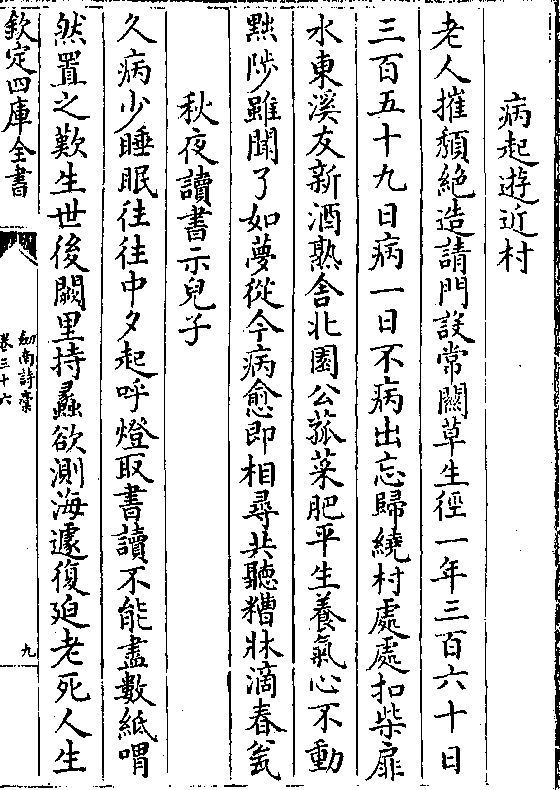 病起遊近村
老人摧頽絶造請門設常關草生徑一年三百六十日
三百五十九日病一日不病出忘歸繞村處處扣柴扉
水東溪友新酒熟舍北園公菰菜肥平生養氣心不動
黜陟雖聞了如夢從今病愈即相尋共聽糟牀滴春瓮
秋夜讀書示兒子
久病少睡眠往往中夕起呼燈取書讀不能盡數紙喟
然置之歎生世後闕里持蠡欲測海遽復迫老死人生
欽定四庫全書
劍南詩稾
卷三十六
九